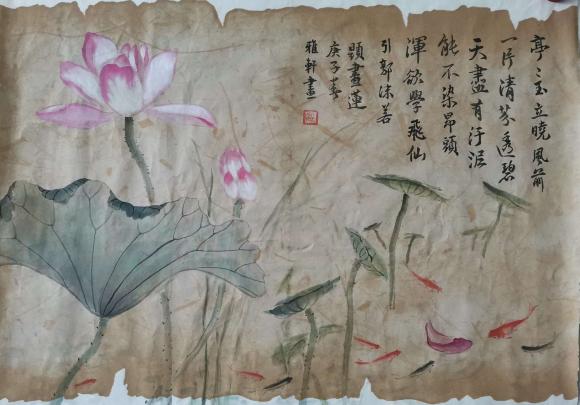 亭〻玉立曉風前
一片清芬透碧
天盡有汙泥
能不染昂頭
渾欲學飛仙
引郭沫若
題畫蓮
庚子春
雅軒畫